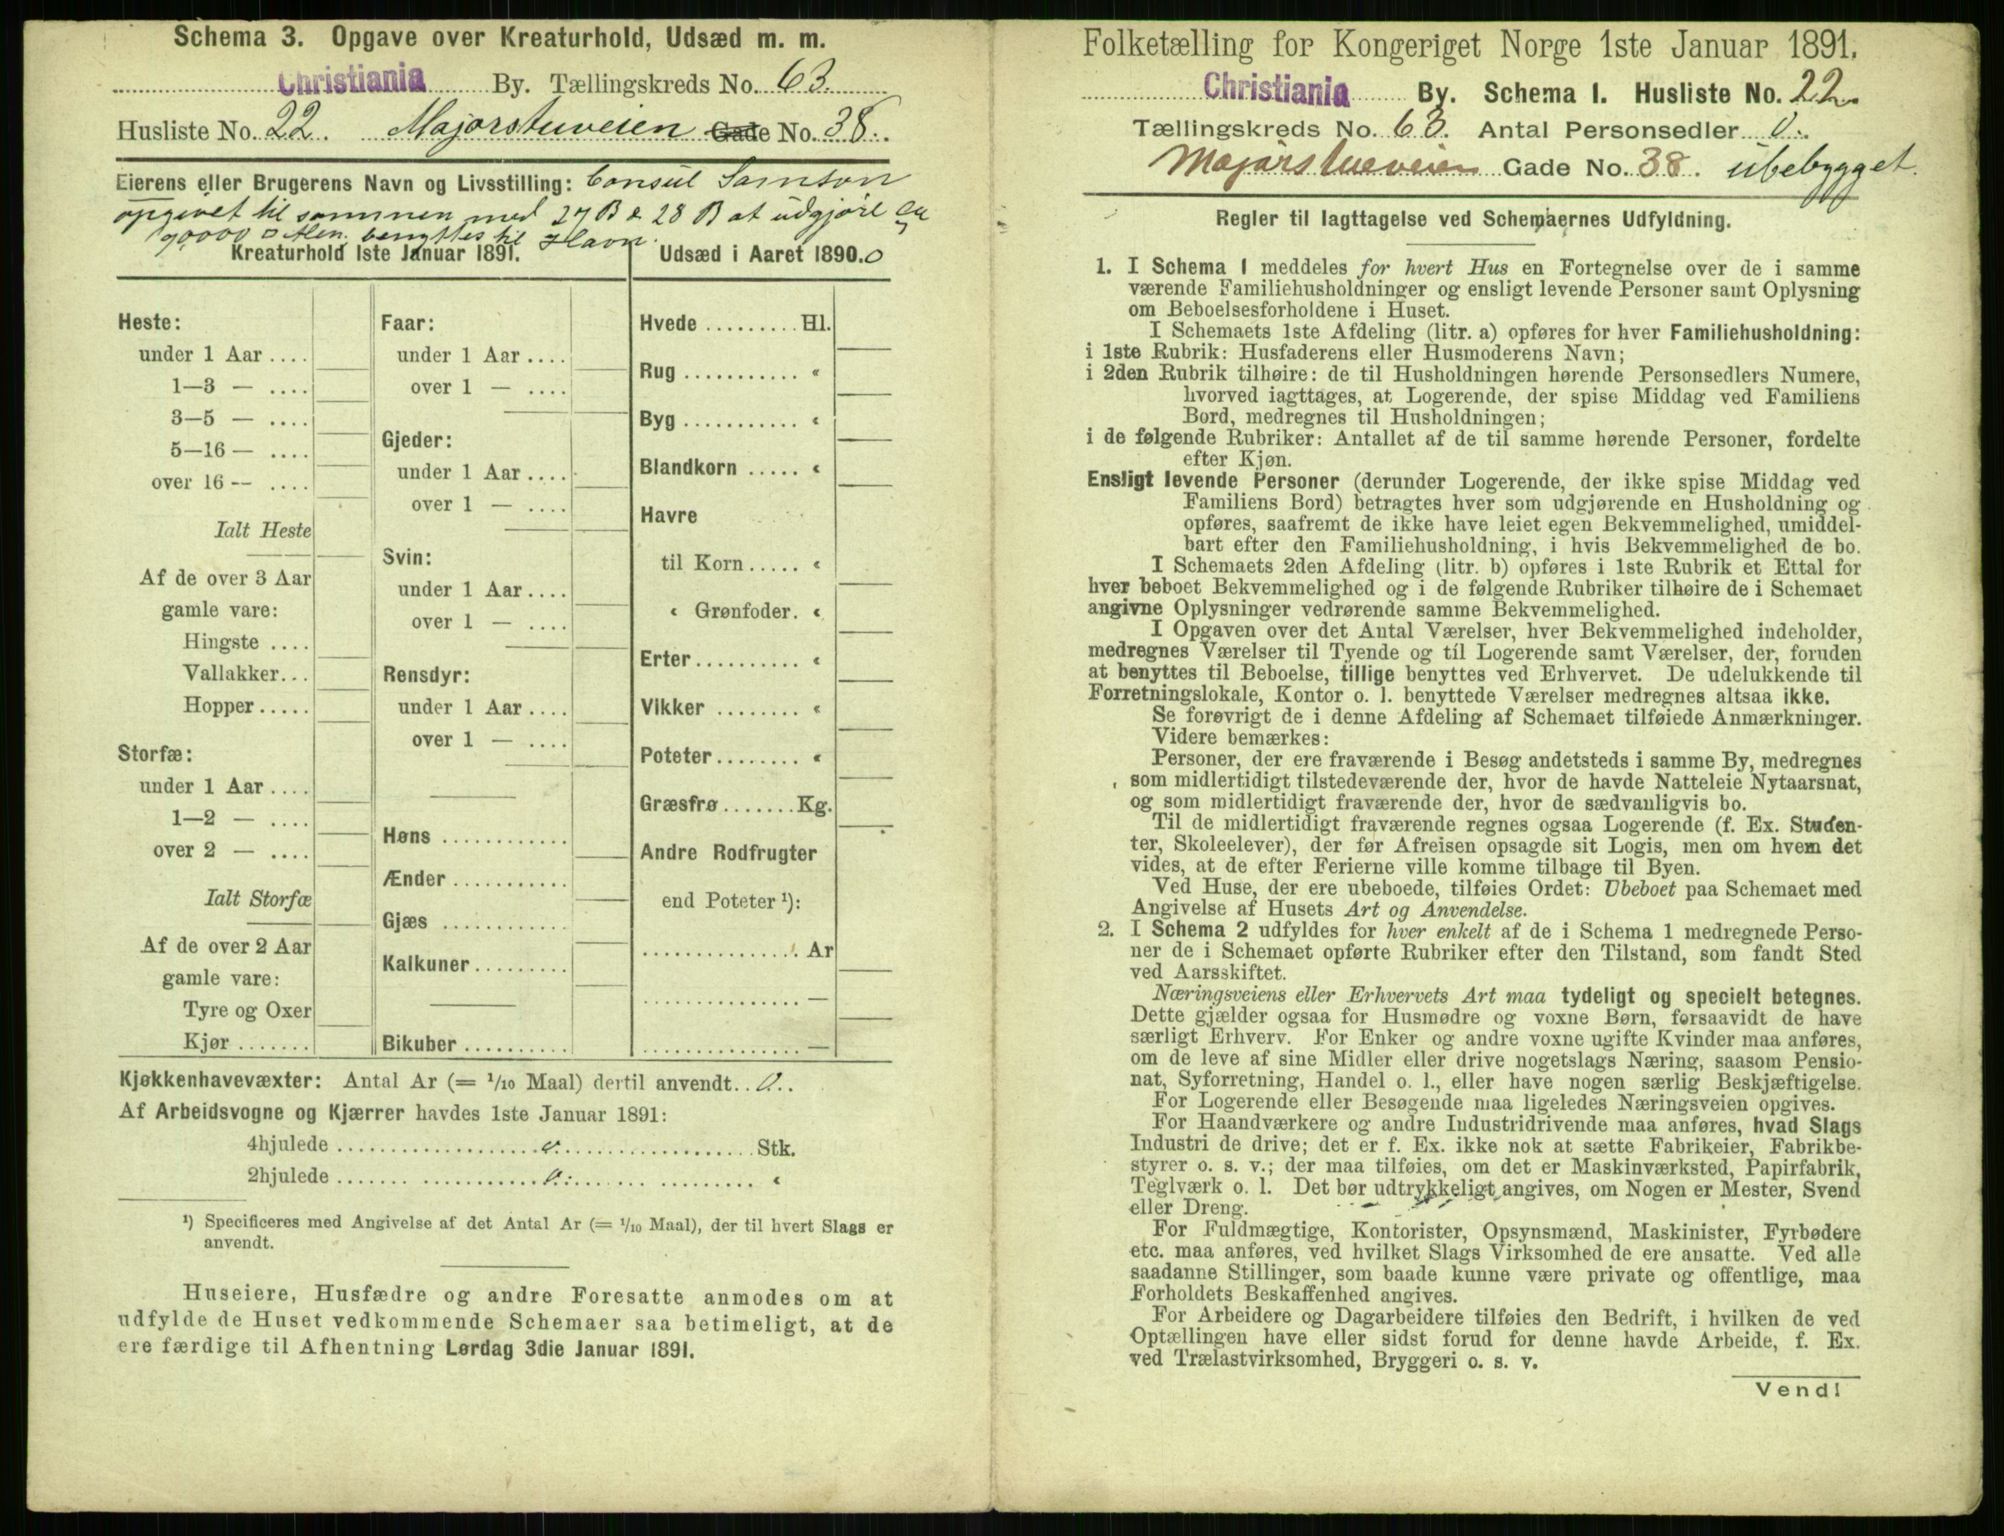 Schema 3. Opgave over Kreaturhold, Udsæd m. m.
Christiania By. Tællingskreds No. 63.
Husliste No. 22. Majorstuveien Gade No. 38.
Eierens eller Brugerens Navn og Livsstilling: Consul Samson
opgivet til sammen med 27 B & 28 B at udgjøre ca
90000 □ Alen, benyttes til Havn.
Kreaturhold 1ste Januar 1891.
Heste:
under 1 Aar ....
1—3 — ....
3—5 — ....
5—16 — ....
over 16 -- ....
Ialt Heste
Af de over 3 Aar
gamle vare:
Hingste ....
Vallakker...
Hopper.....
Storfæ:
under 1 Aar ....
1—2 — ....
over 2 — ....
Ialt Storfæ
Af de over 2 Aar
gamle vare:
Tyre og Oxer
Kjør .......
Faar:
under 1 Aar ....
over 1 — ....
Gjeder:
under 1 Aar ....
over 1 — ....
Svin:
under 1 Aar ....
over 1 — ....
Rensdyr:
under 1 Aar ....
over 1 — ....
Høns ............
Ænder ...........
Gjæs ............
Kalkuner.........
Bikuber ..........
Udsæd i Aaret 1890. 0
Hvede ......... Hl.
Rug ........... «
Byg ........... «
Blandkorn ..... «
Havre
til Korn..... «
« Grønfoder. «
Erter.......... «
Vikker ........ «
Poteter........ «
Græsfrø ....... Kg.
Andre Rodfrugter
end Poteter ¹):
............... Ar
............... —
............... —
Kjøkkenhavevæxter: Antal Ar (= 1/10 Maal) dertil anvendt.. 0..
Af Arbeidsvogne og Kjærrer havdes 1ste Januar 1891:
4hjulede .................... 0. .................... Stk.
2hjulede .................... 0. .................... «
¹) Specificeres med Angivelse af det Antal Ar (= 1/10 Maal), der til hvert Slags er
anvendt.
Huseiere, Husfædre og andre Foresatte anmodes om at
udfylde de Huset vedkommende Schemaer saa betimeligt, at de
ere færdige til Afhentning Lørdag 3die Januar 1891.
Folketælling for Kongeriget Norge 1ste Januar 1891.
Christiania By. Schema 1. Husliste No. 22.
Tællingskreds No. 63. Antal Personsedler 0.
Majorstueveien Gade No. 38. ubebygget.
Regler til Iagttagelse ved Schemaernes Udfyldning.
1. I Schema 1 meddeles for hvert Hus en Fortegnelse over de i samme
værende Familiehusholdninger og ensligt levende Personer samt Oplysning
om Beboelsesforholdene i Huset.
I Schemaets 1ste Afdeling (litr. a) opføres for hver Familiehusholdning:
i 1ste Rubrik: Husfaderens eller Husmoderens Navn;
i 2den Rubrik tilhøire: de til Husholdningen hørende Personsedlers Numere,
hvorved iagttages, at Logerende, der spise Middag ved Familiens
Bord, medregnes til Husholdningen;
i de følgende Rubriker: Antallet af de til samme hørende Personer, fordelte
efter Kjøn.
Ensligt levende Personer (derunder Logerende, der ikke spise Middag ved
Familiens Bord) betragtes hver som udgjørende en Husholdning og
opføres, saafremt de ikke have leiet egen Bekvemmelighed, umiddel-
bart efter den Familiehusholdning, i hvis Bekvemmelighed de bo.
I Schemaets 2den Afdeling (litr. b) opføres i 1ste Rubrik et Ettal for
hver beboet Bekvemmelighed og i de følgende Rubriker tilhøire de i Schemaet
angivne Oplysninger vedrørende samme Bekvemmelighed.
I Opgaven over det Antal Værelser, hver Bekvemmelighed indeholder,
medregnes Værelser til Tyende og til Logerende samt Værelser, der, foruden
at benyttes til Beboelse, tillige benyttes ved Erhvervet. De udelukkende til
Forretningslokale, Kontor o. l. benyttede Værelser medregnes altsaa ikke.
Se forøvrigt de i denne Afdeling af Schemaet tilføiede Anmærkninger.
Videre bemærkes:
Personer, der ere fraværende i Besøg andetsteds i samme By, medregnes
som midlertidigt tilstedeværende der, hvor de havde Natteleie Nytaarsnat,
og som midlertidigt fraværende der, hvor de sædvanligvis bo.
Til de midlertidigt fraværende regnes ogsaa Logerende (f. Ex. Studen-
ter, Skoleelever), der før Afreisen opsagde sit Logis, men om hvem det
vides, at de efter Ferierne ville komme tilbage til Byen.
Ved Huse, der ere ubeboede, tilføies Ordet: Ubeboet paa Schemaet med
Angivelse af Husets Art og Anvendelse.
2. I Schema 2 udfyldes for hver enkelt af de i Schema 1 medregnede Perso-
ner de i Schemaet opførte Rubriker efter den Tilstand, som fandt Sted
ved Aarsskiftet.
Næringsveiens eller Erhvervets Art maa tydeligt og specielt betegnes.
Dette gjælder ogsaa for Husmødre og voxne Børn, forsaavidt de have
særligt Erhverv. For Enker og andre voxne ugifte Kvinder maa anføres,
om de leve af sine Midler eller drive nogetslags Næring, saasom Pensio-
nat, Syforretning, Handel o. l., eller have nogen særlig Beskjæftigelse.
For Logerende eller Besøgende maa ligeledes Næringsveien opgives.
For Haandværkere og andre Industridrivende maa anføres, hvad Slags
Industri de drive; det er f. Ex. ikke nok at sætte Fabrikeier, Fabrikbe-
styrer o. s. v.; der maa tilføies, om det er Maskinværksted, Papirfabrik,
Teglværk o. l. Det bør udtrykkeligt angives, om Nogen er Mester, Svend
eller Dreng.
For Fuldmægtige, Kontorister, Opsynsmænd, Maskinister, Fyrbødere
etc. maa anføres, ved hvilket Slags Virksomhed de ere ansatte. Ved alle
saadanne Stillinger, som baade kunne være private og offentlige, maa
Forholdets Beskaffenhed angives.
For Arbeidere og Dagarbeidere tilføies den Bedrift, i hvilken de ved
Optællingen have eller sidst forud for denne havde Arbeide, f. Ex.
ved Trælastvirksomhed, Bryggeri o. s. v.
Vend!